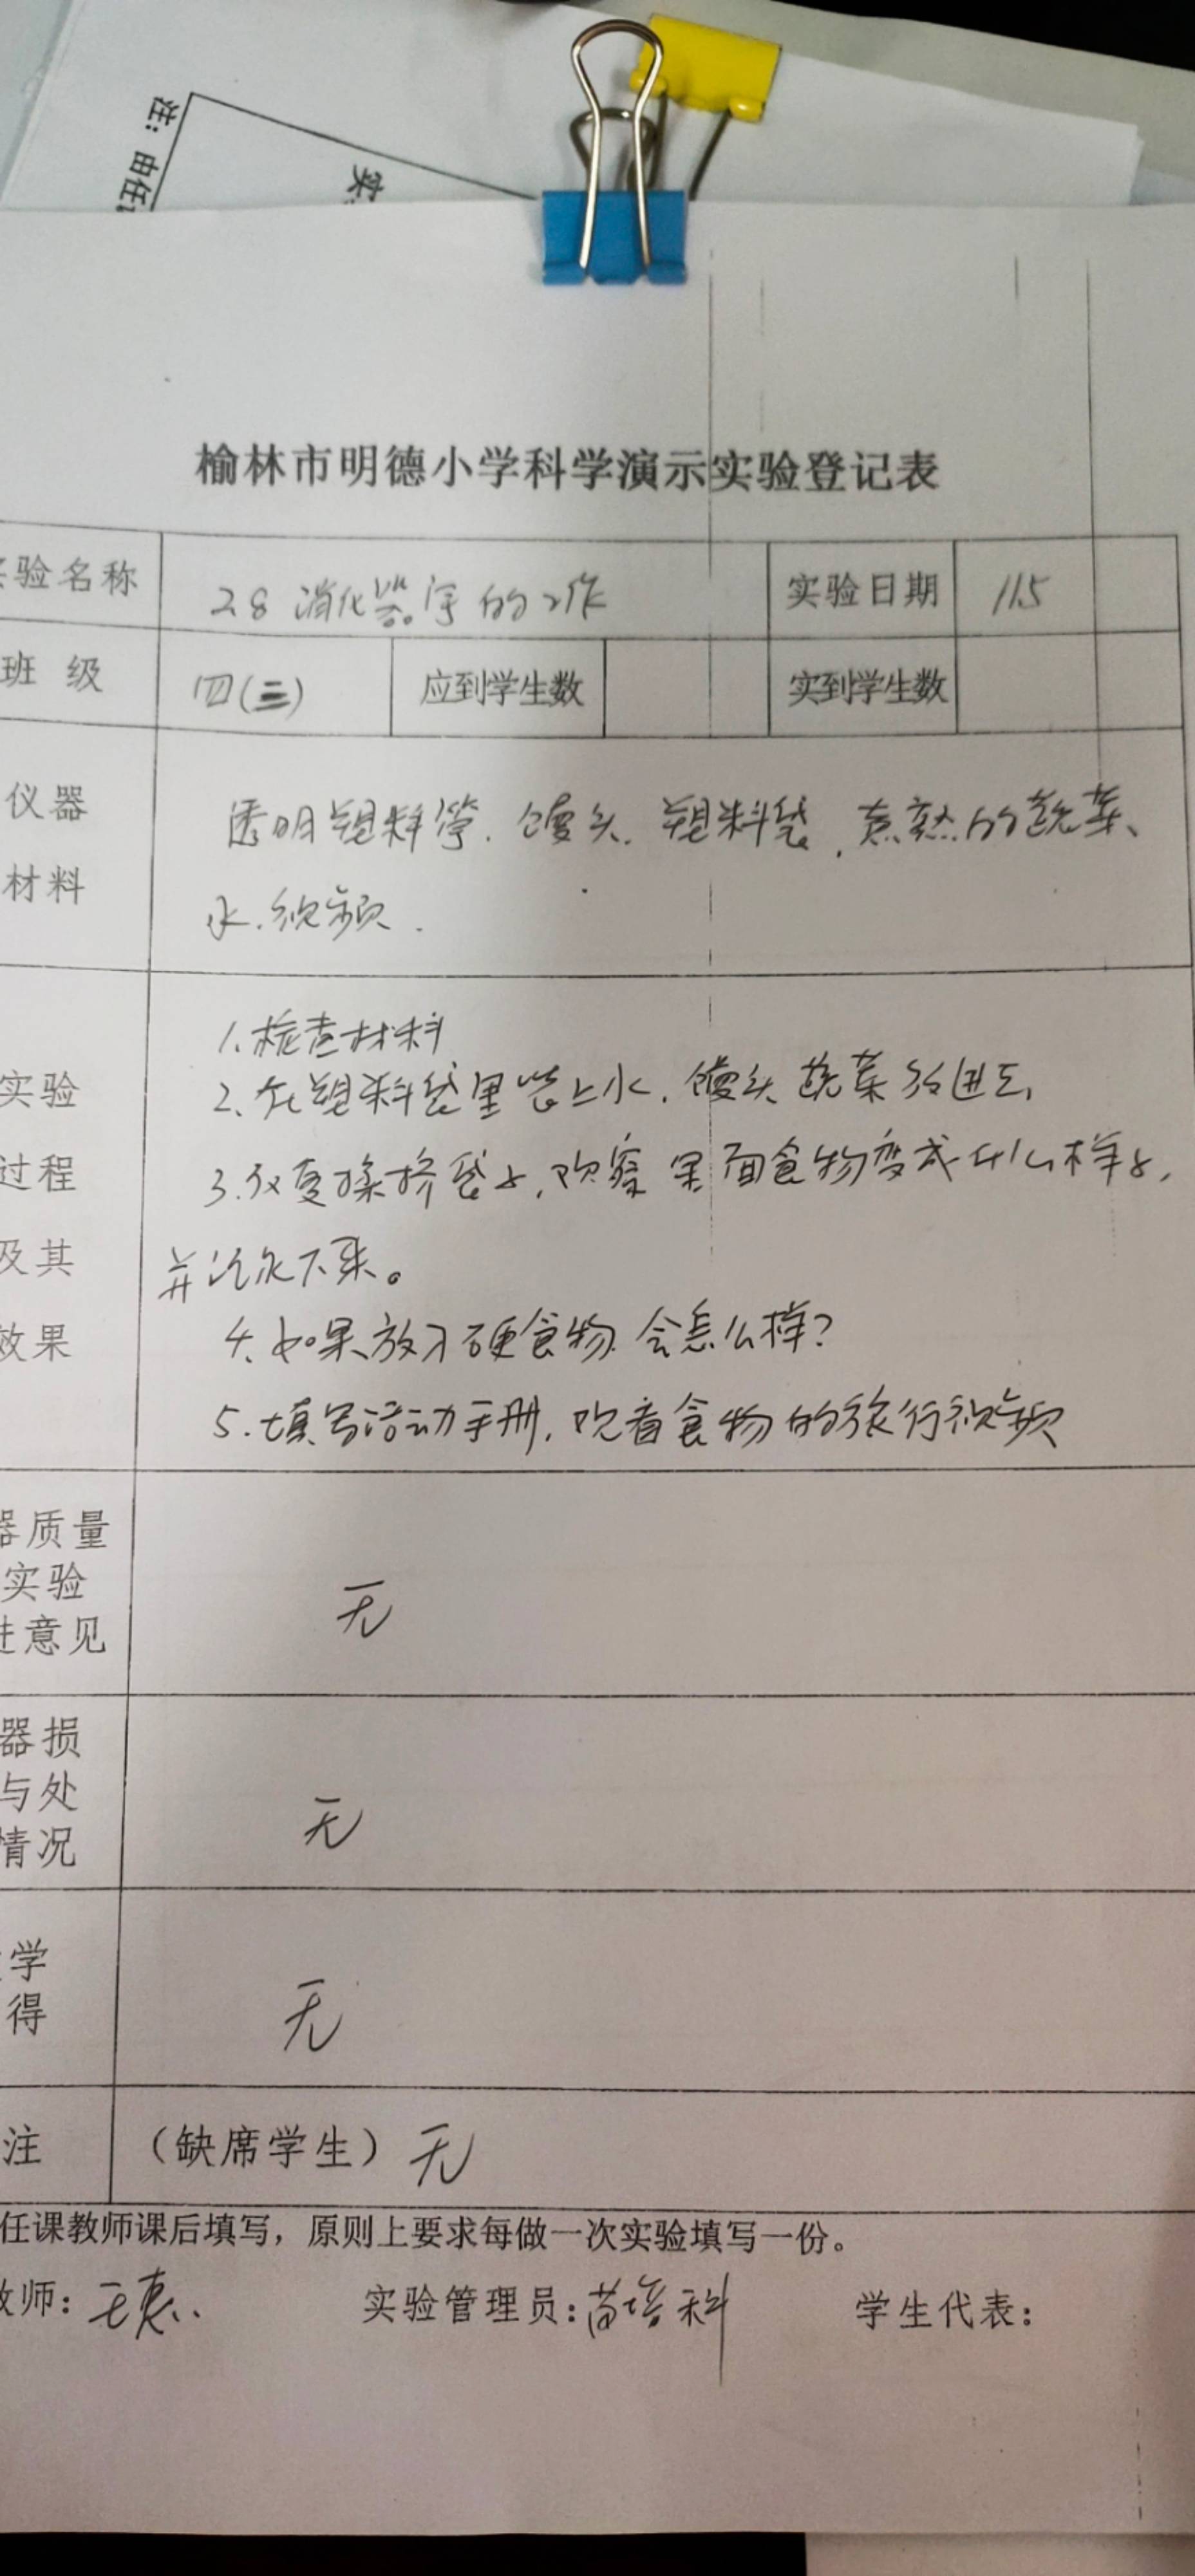 注：由任
实
榆林市明德小学科学演示实验登记表
验名称 2.8 消化器官的工作 实验日期 11.5
班 级 四(三) 应到学生数 实到学生数
仪器
材料
透明塑料管、馒头、塑料袋、煮熟的蔬菜、
水、视频.
实验
过程
及其
效果
1、检查材料
2、在塑料袋里装上水、馒头 蔬菜 放进去
3.反复揉挤袋子,观察里面食物变成什么样子,
并记录下来。
4、如果放入硬食物 会怎么样?
5.填写活动手册,观看食物的旅行视频
器质量
实验
进意见
无
器损
与处
情况
无
学
得
无
注 （缺席学生）无
任课教师课后填写，原则上要求每做一次实验填写一份。
教师: 实验管理员:苗培科 学生代表: